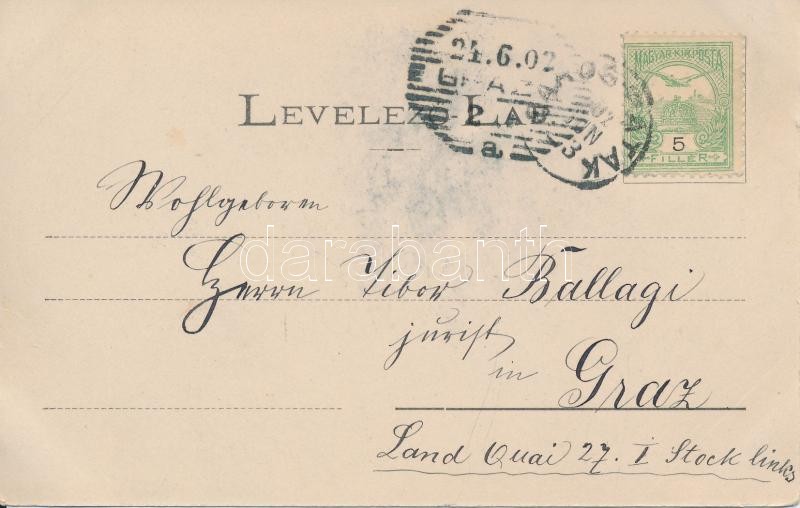 24.6.02
GRAZ
2
a
LEVELEZŐ-LAP
MAGYAR KIR. POSTA
5
FILLÉR
PATAK
Wohlgeboren
darabanth
Herrn Tibor Ballagi
jurist
in
Graz
Land Quai 27. I Stock links